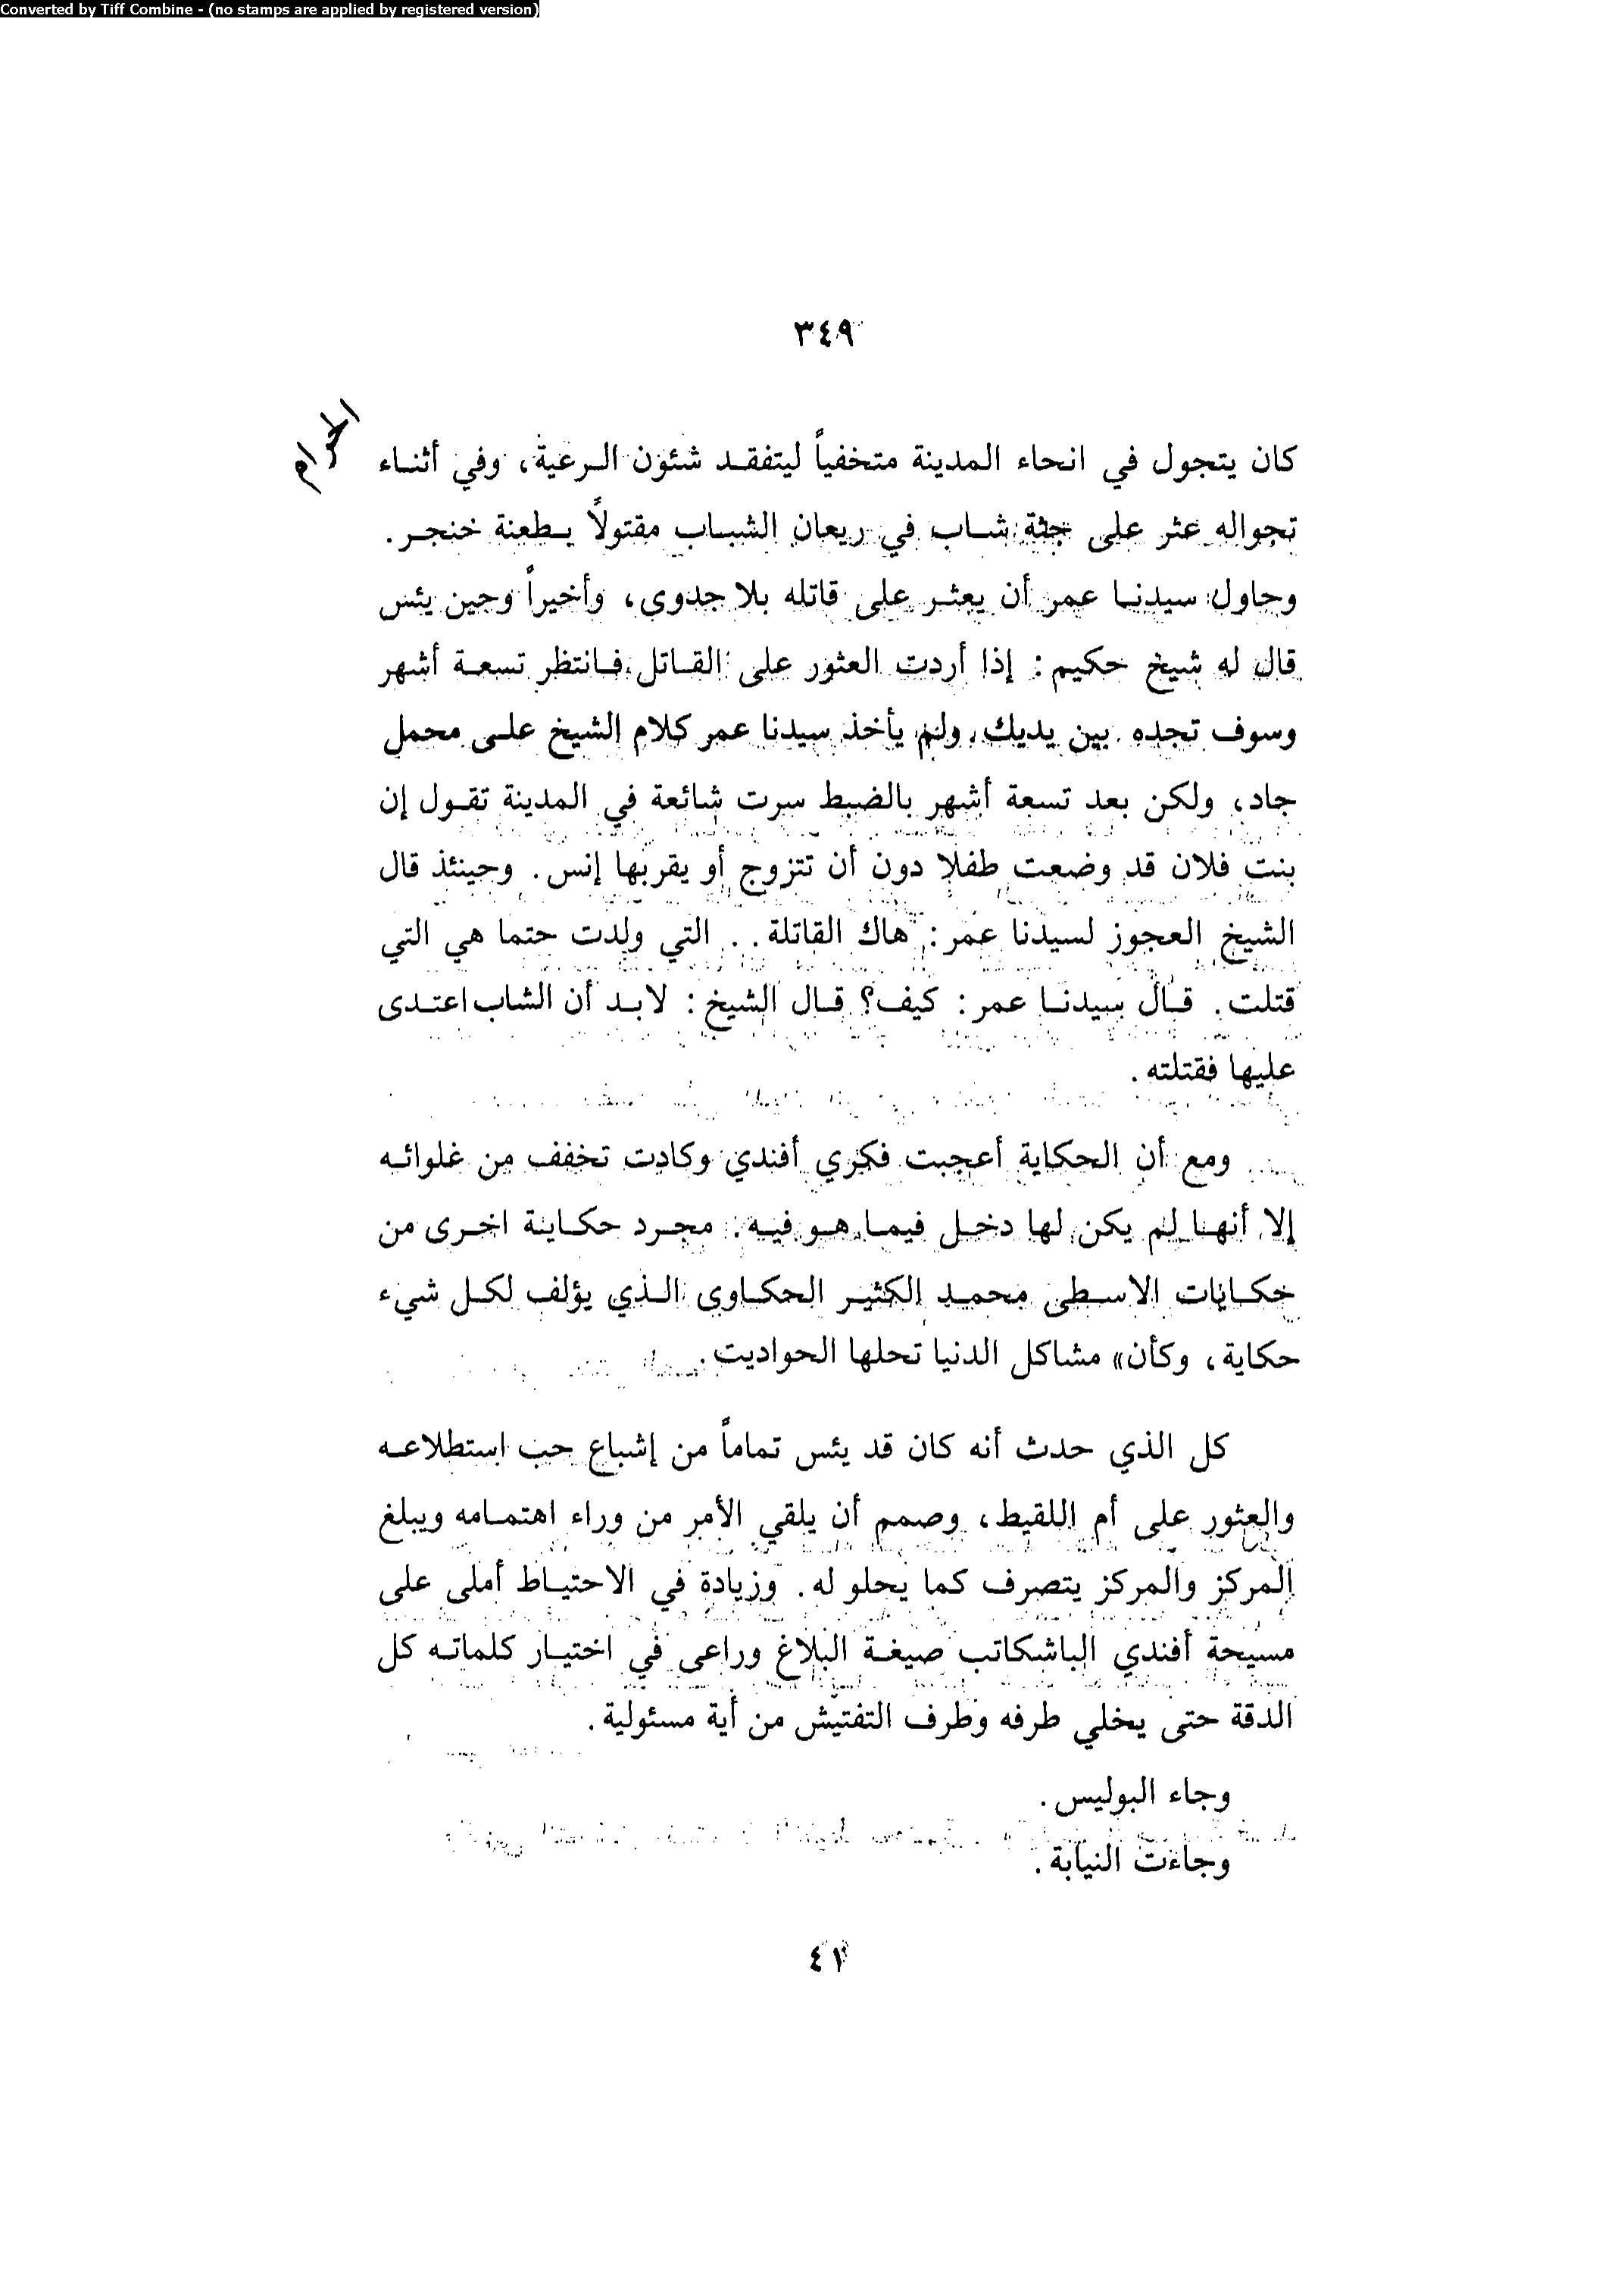 Converted by Tiff Combine - (no stamps are applied by registered version)
٣٤٩
الحرام
كان يتجول في انحاء المدينة متخفياً ليتفقد شئون الرعية، وفي أثناء
تجواله عثر على جثة شاب في ريعان الشباب مقتولاً بطعنة خنجر.
وحاول سيدنا عمر أن يعثر على قاتله بلا جدوى، وأخيراً وحين يئس
قال له شيخ حكيم: إذا أردت العثور على القاتل فانتظر تسعة أشهر
وسوف تجده بين يديك، ولم يأخذ سيدنا عمر كلام الشيخ على محمل
جاد، ولكن بعد تسعة أشهر بالضبط سرت شائعة في المدينة تقول إن
بنت فلان قد وضعت طفلا دون أن تتزوج أو يقربها إنس. وحينئذ قال
الشيخ العجوز لسيدنا عمر: هاك القاتلة.. التي ولدت حتما هي التي
قتلت. قال سيدنا عمر: كيف؟ قال الشيخ: لابد أن الشاب اعتدى
عليها فقتلته.
ومع أن الحكاية أعجبت فكري أفندي وكادت تخفف من غلوائه
إلا أنها لم يكن لها دخل فيما هو فيه. مجرد حكاية اخرى من
حكايات الاسطى محمد الكثير الحكاوى الذي يؤلف لكل شيء
حكاية، وكأن» مشاكل الدنيا تحلها الحواديت.
كل الذي حدث أنه كان قد يئس تماماً من إشباع حب استطلاعه
والعثور على أم اللقيط، وصمم أن يلقي الأمر من وراء اهتمامه ويبلغ
المركز والمركز يتصرف كما يحلو له. وزيادة في الاحتياط أملى على
مسيحة أفندي الباشكاتب صيغة البلاغ وراعى في اختيار كلماته كل
الدقة حتى يخلي طرفه وطرف التفتيش من أية مسئولية.
وجاء البوليس.
وجاءت النيابة.
٤١